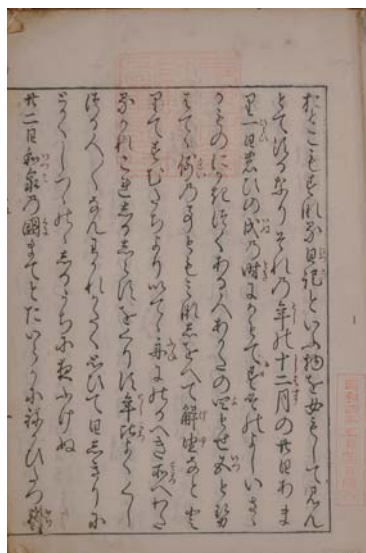 をとこもすなる日記といふ物を女もして見ん
とてするなりそれの年の十二月の廿日あま
り一日の日の戌の時にかとてすそのよしいさゝ
かものにかきつくある人あかたの四とせ五とせ
はてゝ例のことゝもみなしをへて解由なとと
りてすむたちよりいてゝ舟にのるへき所へわた
るかれこれしるしらぬをくりす年比よくくし
つる人々なんわかれかたく思ひて日しきりに
とかくしつゝのゝしるうちに夜ふけぬ
廿二日和泉の国まてとたいらかに ねかひたつ藤